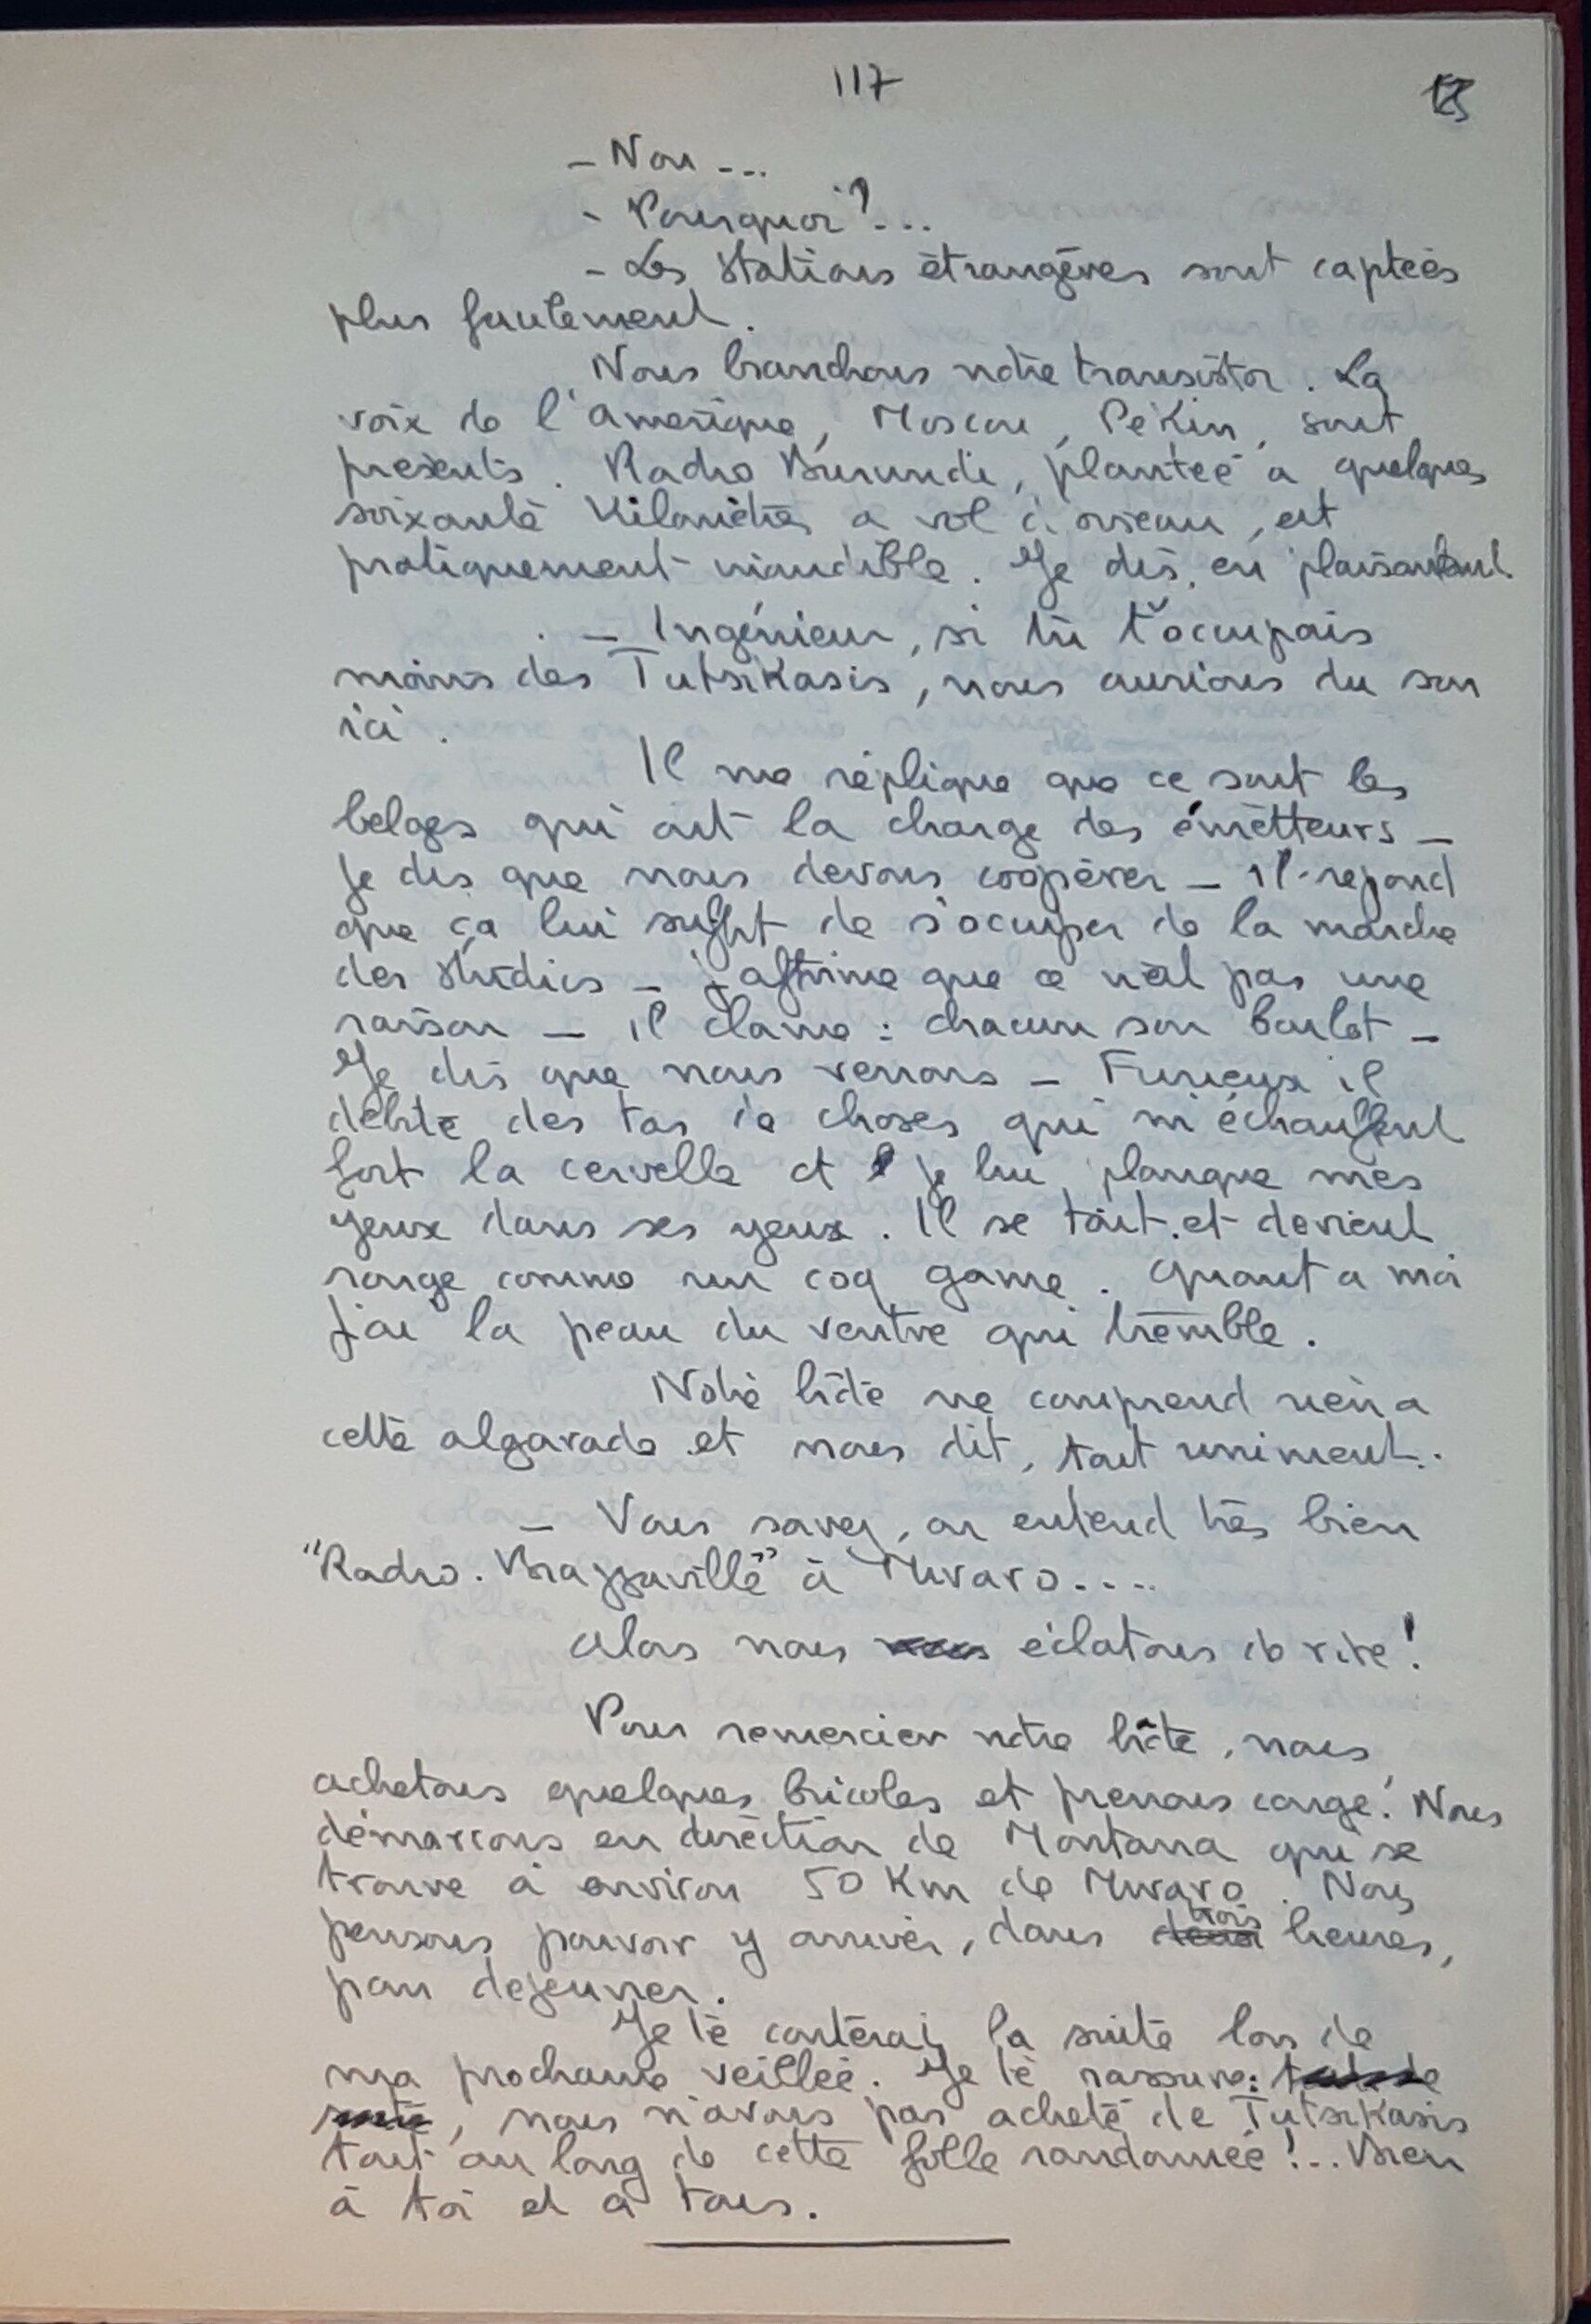 117
- Non ...
- Pourquoi ? ...
- Les stations étrangères sont captées
plus facilement.
Nous branchons notre transistor. La
voix de l'amérique, Moscou, Pékin, sont
présents. Radio Burundi, plantée à quelques
soixante kilomètres à vol d'oiseau, est
pratiquement inaudible. Je dis, en plaisantant.
- Ingénieur, si tu t'occupais
moins des Tutsikasis, nous aurions du son
ici.
Il me réplique que ce sont les
belges qui ont la charge des émetteurs -
Je dis que nous devons coopérer - il répond
que ça lui suffit de s'occuper de la marche
des studios - j'affirme que ce n'est pas une
raison - il clame : chacun son boulot -
Je dis que nous verrons - Furieux il
débite des tas de choses qui m'échauffent
fort la cervelle et je lui planque mes
yeux dans ses yeux. Il se tait et devient
rouge comme un coq game. Quant à moi
j'ai la peau du ventre qui tremble.
Notre hôte ne comprend rien à
cette algarade et nous dit, tout uniment.
- Vous savez, on entend très bien
"Radio. Brazzaville" à Muraro....
Alors nous éclatons de rire !
Pour remercier notre hôte, nous
achetons quelques bricoles et prenons congé. Nous
démarrons en direction de Montana qui se
trouve à environ 50 Km de Muraro. Nous
pensons pouvoir y arriver, dans deux trois heures,
pour déjeuner.
Je te conterai la suite lors de
ma prochaine veillée. Je te rassure :
suite, nous n'avons pas acheté de Tutsikasis
tout au long de cette folle randonnée !.. Bien
à toi et à tous.